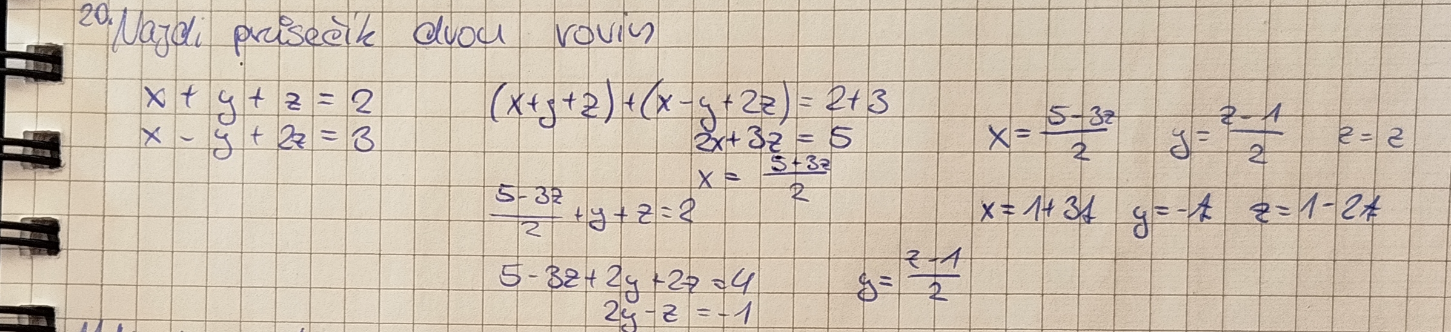 20. Najdi průsečík dvou rovin
x + y + z = 2
x - y + 2z = 3
(x+y+z)+(x-y+2z)=2+3
2x+3z = 5
x = \frac{5+3z}{2}
\frac{5-3z}{2} + y + z = 2
5-3z+2y+2z=4
2y-z=-1
y = \frac{z-1}{2}
x = \frac{5-3z}{2} y = \frac{z-1}{2} z = z
x = 1+3t y = -t z = 1-2t